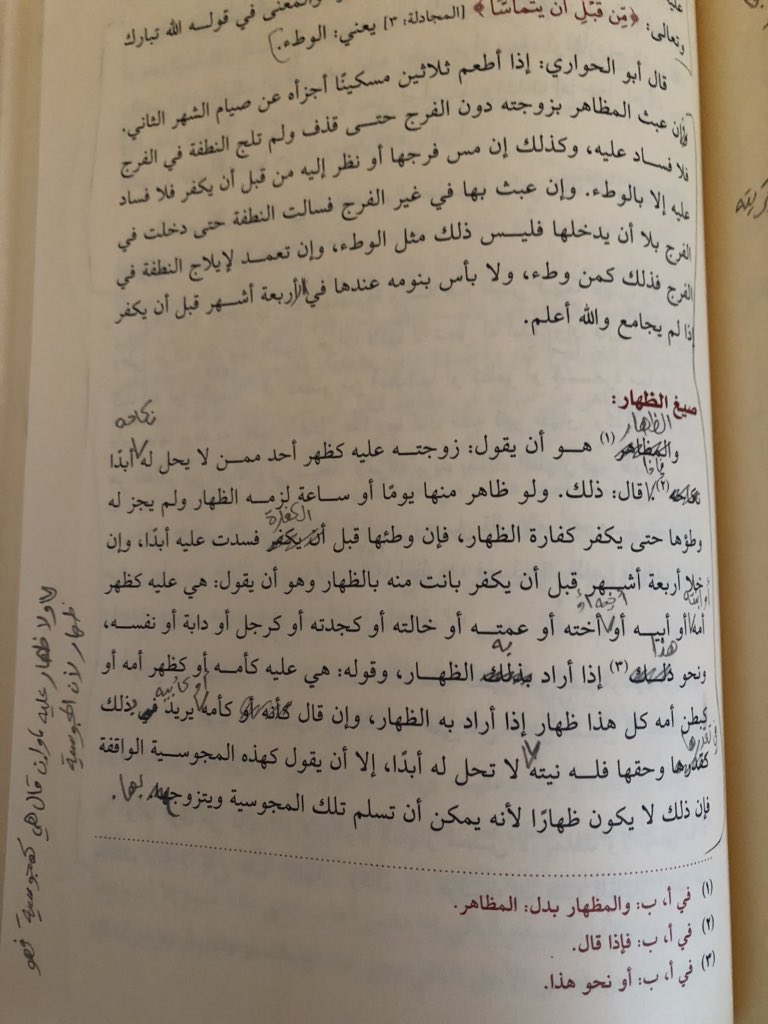 والمعنى في قوله الله تبارك
وتعالى: ﴿مِّن قَبْلِ أَن يَتَمَاسَّا﴾ [المجادلة: ٣] يعني: الوطء.
قال أبو الحواري: إذا أطعم ثلاثين مسكينًا أجزأه عن صيام الشهر الثاني.
وإن عبث المظاهر بزوجته دون الفرج حتى قذف ولم تلج النطفة في الفرج
فلا فساد عليه، وكذلك إن مس فرجها أو نظر إليه من قبل أن يكفر فلا فساد
عليه إلا بالوطء. وإن عبث بها في غير الفرج فسالت النطفة حتى دخلت في
الفرج بلا أن يدخلها فليس ذلك مثل الوطء، وإن تعمد لإيلاج النطفة في
الفرج فذلك كمن وطء، ولا بأس بنومه عندها في الأربعة أشهر قبل أن يكفر
إذا لم يجامع والله أعلم.
صيغ الظهار:
الظهار
نكاحه
والمظاهر (١) هو أن يقول: زوجته عليه كظهر أحد ممن لا يحل له أبدًا
فإذا
نكاحه (٢) قال: ذلك. ولو ظاهر منها يومًا أو ساعة لزمه الظهار ولم يجز له
الكفارة
وطؤها حتى يكفر كفارة الظهار، فإن وطئها قبل أن يكفر فسدت عليه أبدًا، وإن
خلا أربعة أشهر قبل أن يكفر بانت منه بالظهار وهو أن يقول: هي عليه كظهر
أمه أو أبيه أو أخته أو عمته أو خالته أو كجدته أو كرجل أو دابة أو نفسه،
هذا
به
ونحو ذلك (٣) إذا أراد بذلك الظهار، وقوله: هي عليه كأمه أو كظهر أمه أو
كبطن أمه كل هذا ظهار إذا أراد به الظهار، وإن قال كأنه أو كأمه يريد في ذلك
كقدرها وحقها فله نيته لا تحل له أبدًا، إلا أن يقول كهذه المجوسية الواقفة
فإن ذلك لا يكون ظهارًا لأنه يمكن أن تسلم تلك المجوسية ويتزوجه بها.
(١) في أ، ب: والمظهار بدل: المظاهر.
(٢) في أ، ب: فإذا قال.
(٣) في أ، ب: أو نحو هذا.
ولا ظهار عليه وإن قال هي كمجوسية فهو
ظهار لأن المجوسية